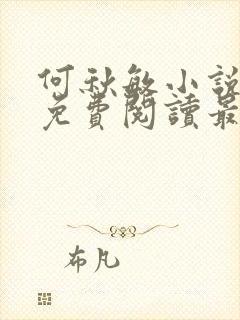 何秋敏小說
免費閱讀最
布凡